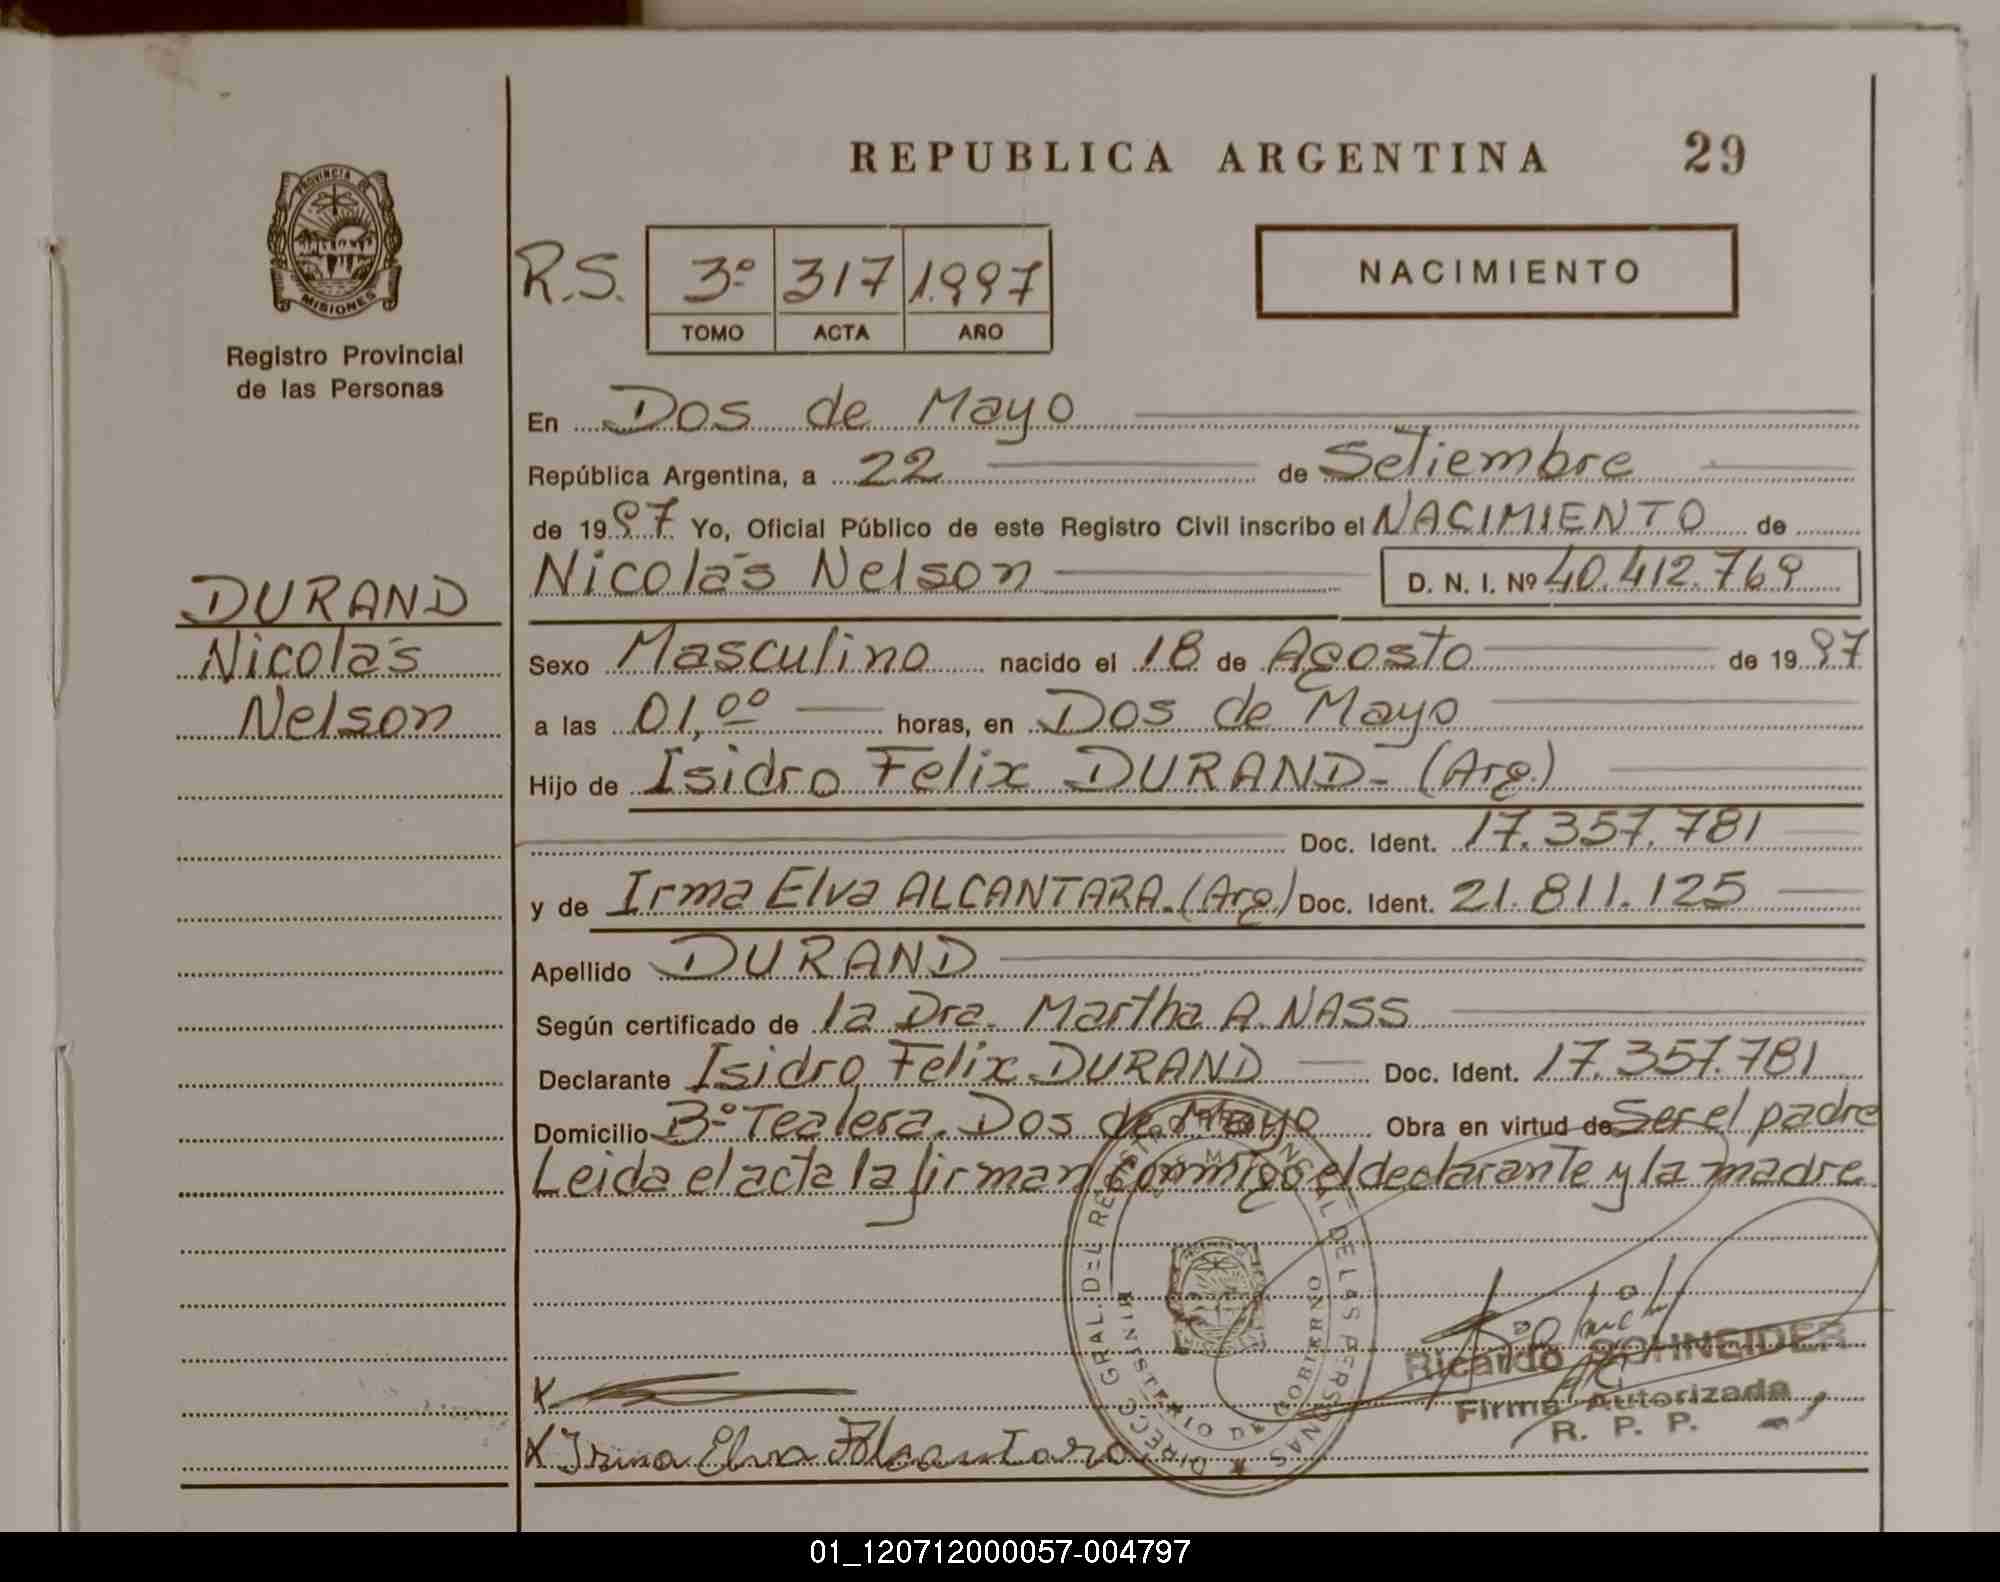 REPUBLICA ARGENTINA 29
PROVINCIA DE
MISIONES
Registro Provincial
de las Personas
R.S. 3º 317 1.997
TOMO ACTA AÑO
NACIMIENTO
En Dos de Mayo
República Argentina, a 22 de Setiembre
de 1997 Yo, Oficial Público de este Registro Civil inscribo el NACIMIENTO de
Nicolás Nelson D. N. I. Nº 40.412.769
DURAND
Nicolás
Nelson
Sexo Masculino nacido el 18 de Agosto de 1997
a las 01,00 horas, en Dos de Mayo
Hijo de Isidro Felix DURAND- (Arg.)
Doc. Ident. 17.357.781
y de Irma Elva ALCANTARA.(Arg.) Doc. Ident. 21.811.125
Apellido DURAND
Según certificado de la Dra. Martha A. NASS
Declarante Isidro Felix DURAND Doc. Ident. 17.357.781
Domicilio Bº Tealera. Dos de Mayo Obra en virtud de Ser el padre
Leida el acta la firman conmigo el declarante y la madre
DIRECC GRAL. DEL REGISTRO PROVINCIAL DE LAS PERSONAS
MINISTERIO DE GOBIERNO
Ricardo SCHNEIDER
Firma Autorizada
R. P. P.
X
X Irma Elva Alcantara
01_120712000057-004797